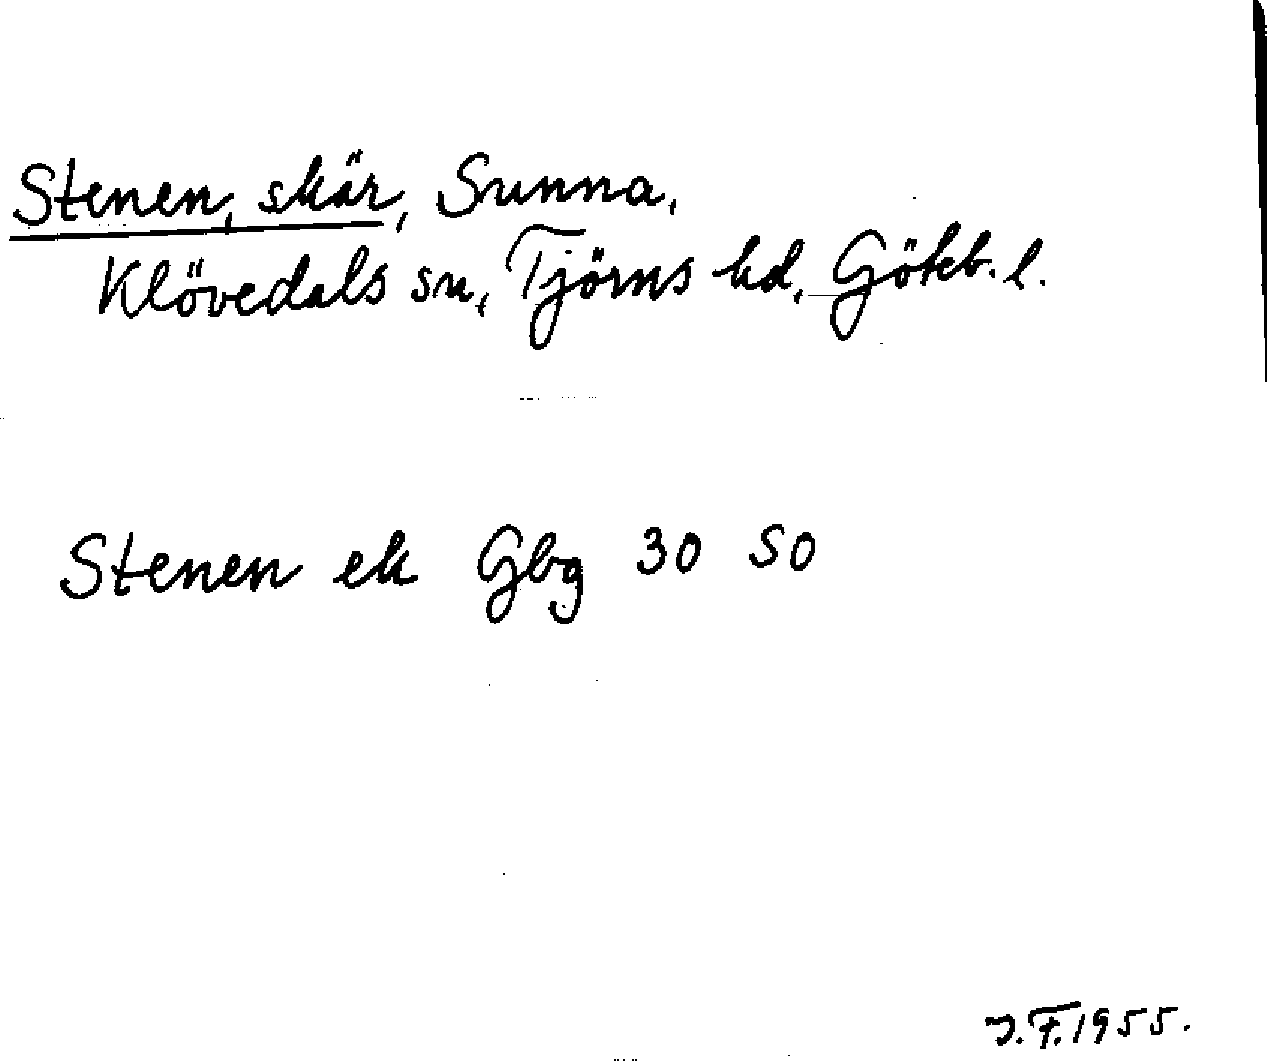 Stenen, skär, Sunna,
Klövedals sn, Tjörns hd, Göteb. l.
Stenen ek Gbg 30 SO
J.F. 1955.